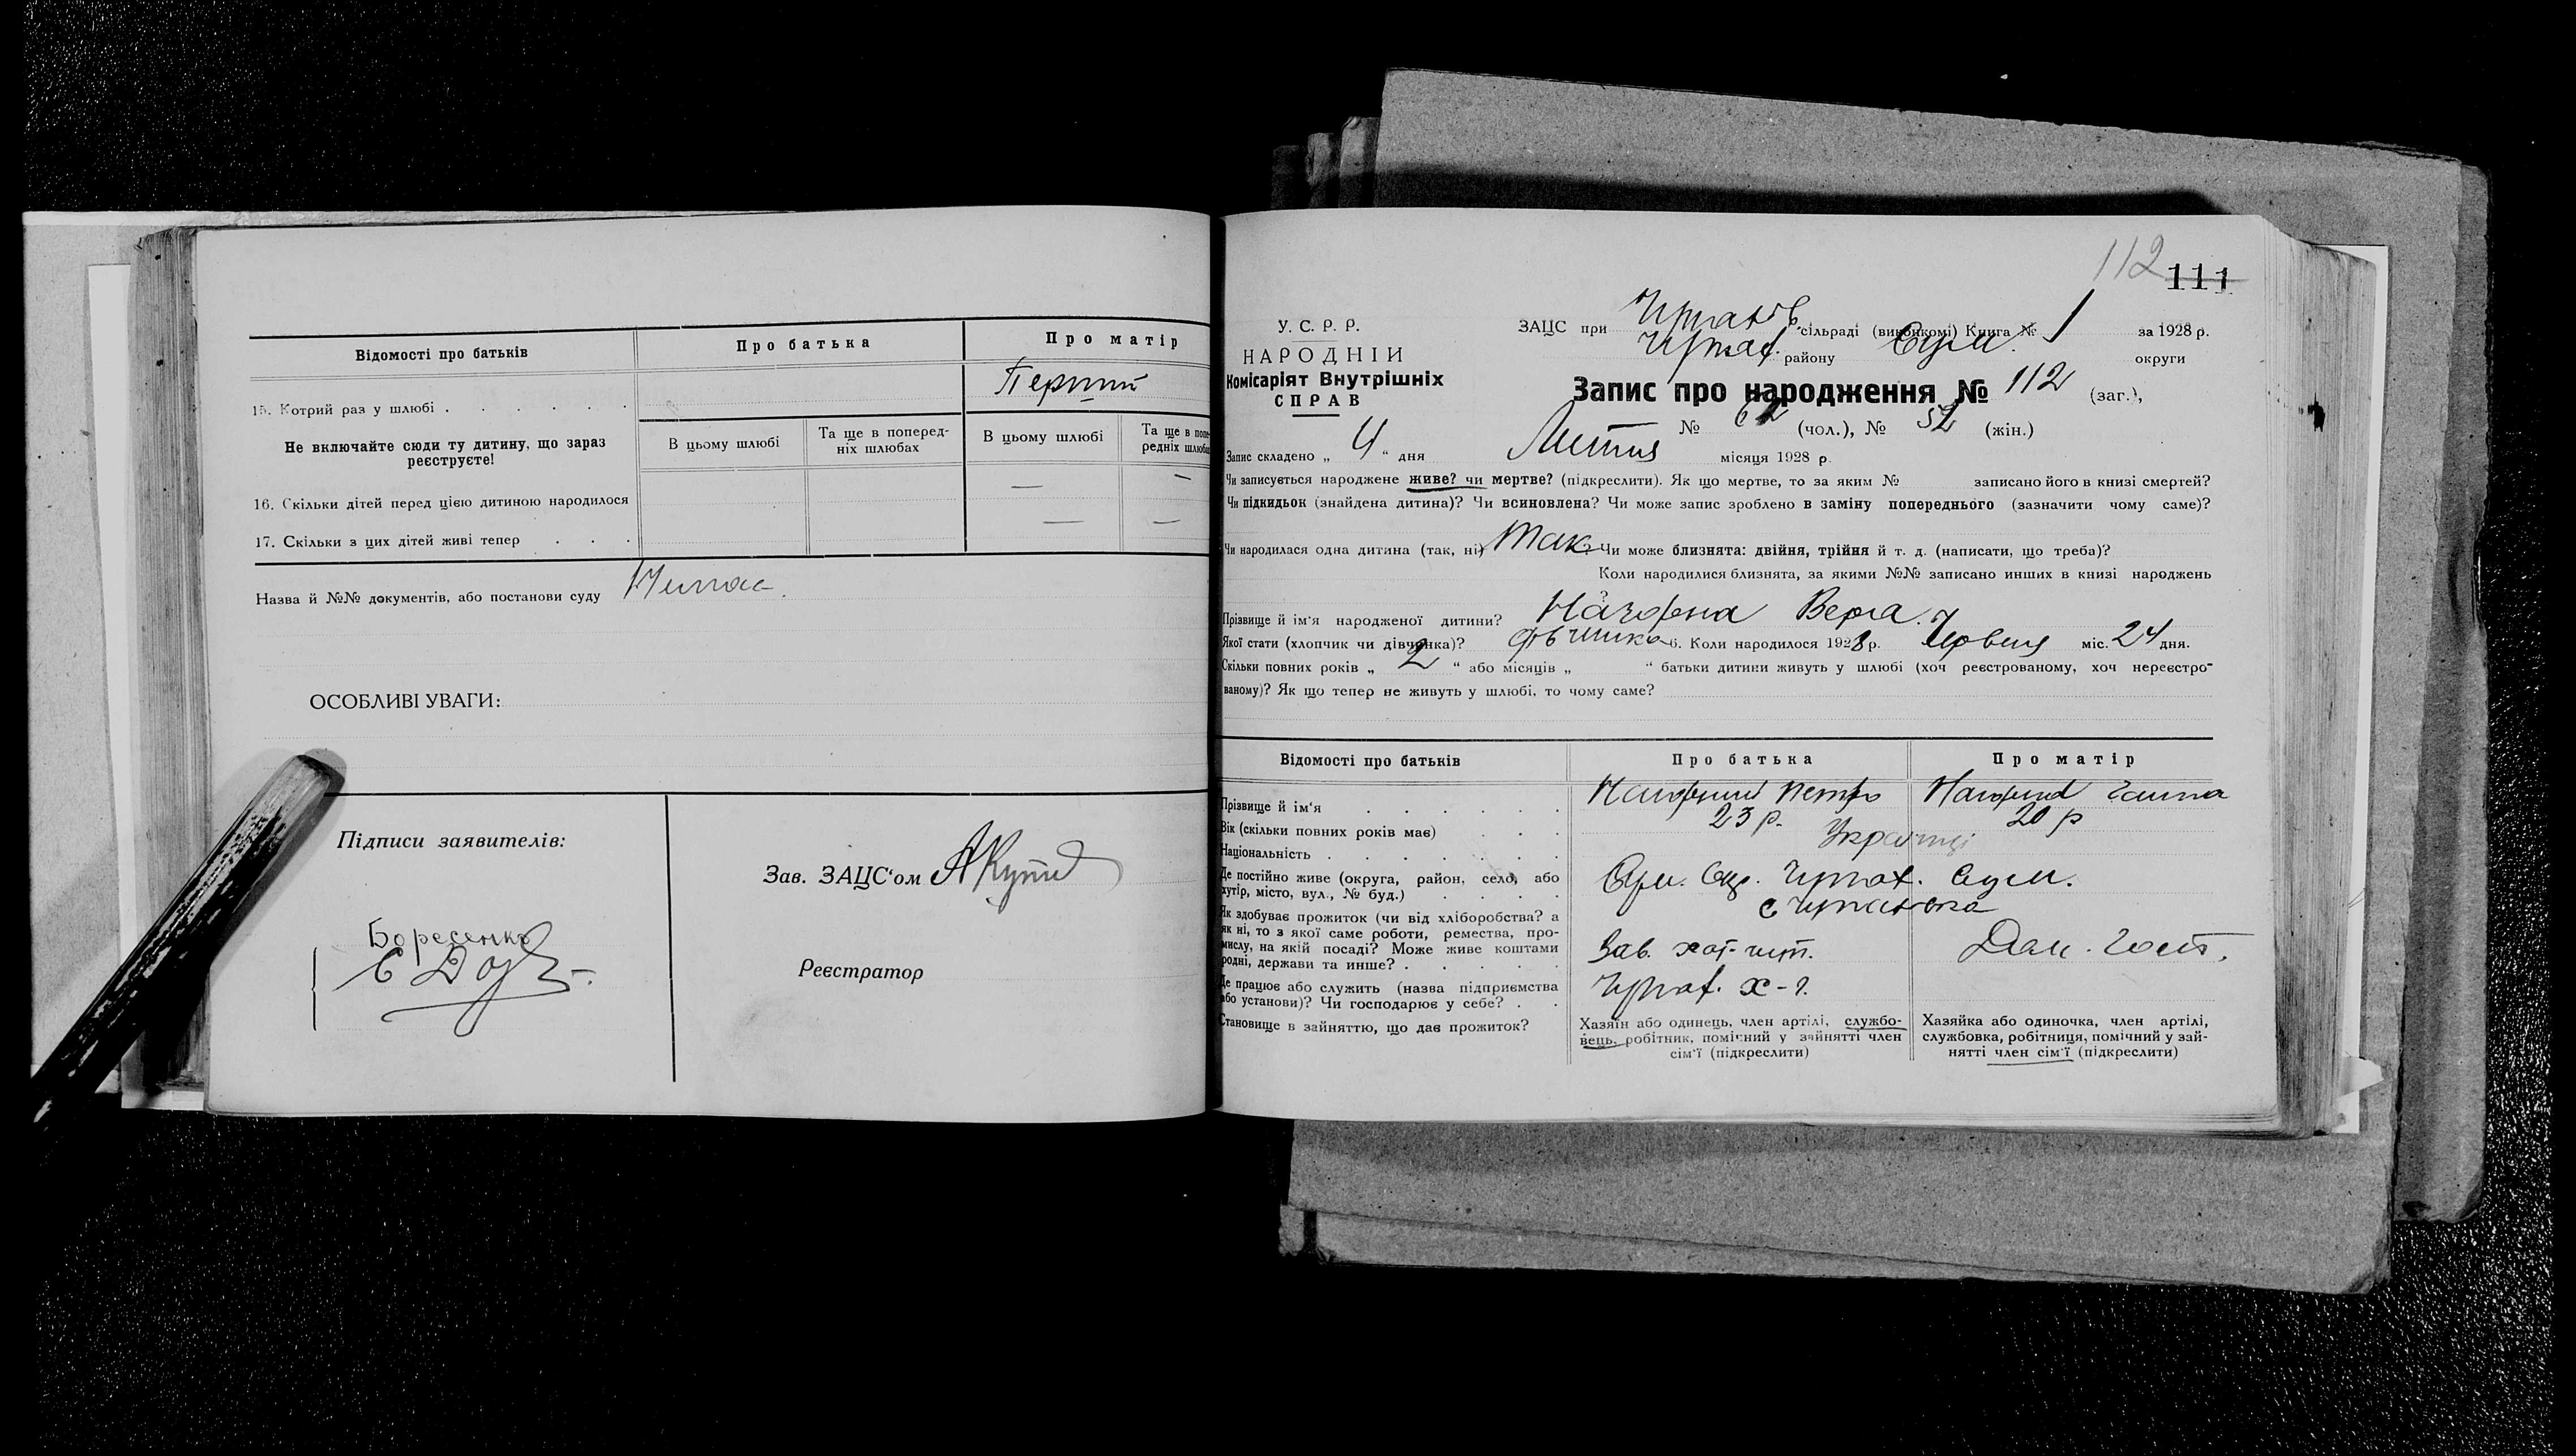 Відомості про батьків
Про батька
Про матір
15. Котрий раз у шлюбі . . . . . .
Перший
Не включайте сюди ту дитину, що зараз
реєструєте!
В цьому шлюбі
Та ще в поперед-
ніх шлюбах
В цьому шлюбі
Та ще в попе-
редніх шлюбах
16. Скільки дітей перед цією дитиною народилося
— —
17. Скільки з цих дітей живі тепер . . .
— —
Назва й №№ документів, або постанови суду
ОСОБЛИВІ УВАГИ:
Підписи заявителів:
Боресенко
Зав. ЗАЦС'ом
Реєстратор
112 111
У. С. Р. Р.
НАРОДНІЙ
Комісаріят Внутрішніх
СПРАВ
ЗАЦС при сільраді (виконкомі) Книга № 1 за 1928 р.
району Сум. округи
Запис про народження № 112 (заг.),
№ 62 (чол.), № 52 (жін.)
Запис складено „ 4 “ дня Липня місяця 1928 р.
Чи записується народжене живе? чи мертве? (підкреслити). Як що мертве, то за яким № записано його в книзі смертей?
Чи підкидьок (знайдена дитина)? Чи всиновлена? Чи може запис зроблено в заміну попереднього (зазначити чому саме)?
Чи народилася одна дитина (так, ні) Так ? Чи може близнята: двійня, трійня й т. д. (написати, що треба)?
Коли народилися близнята, за якими №№ записано инших в книзі народжень
?
Прізвище й ім'я народженої дитини? Нагорна Вера.
Якої стати (хлопчик чи дівчинка)? дівчинка 6. Коли народилося 1928 р. Червня міс. 24 дня.
Скільки повних років „ 2 “ або місяців „ “ батьки дитини живуть у шлюбі (хоч реєстрованому, хоч нереєстро-
ваному)? Як що тепер не живуть у шлюбі, то чому саме?
Відомості про батьків
Про батька
Про матір
Прізвище й ім'я . . . . . .
Нагорний Петро
Ганна
Вік (скільки повних років має) . . .
23 р.
20 р
Національність . . . . . . .
Українці
Де постійно живе (округа, район, село, або
хутір, місто, вул., № буд.) . . . .
Як здобуває прожиток (чи від хліборобства? а
як ні, то з якої саме роботи, ремества, про-
мислу, на якій посаді? Може живе коштами
родні, держави та инше? . . . . .
Зав. хат-чит.
Дом. госп.
Де працює або служить (назва підприємства
або установи)? Чи господарює у себе? . .
х-ч.
Становище в зайняттю, що дає прожиток?
Хазяїн або одинець, член артілі, службо-
вець, робітник, помічний у зайнятті член
сім'ї (підкреслити)
Хазяйка або одиночка, член артілі,
службовка, робітниця, помічний у зай-
нятті член сім'ї (підкреслити)